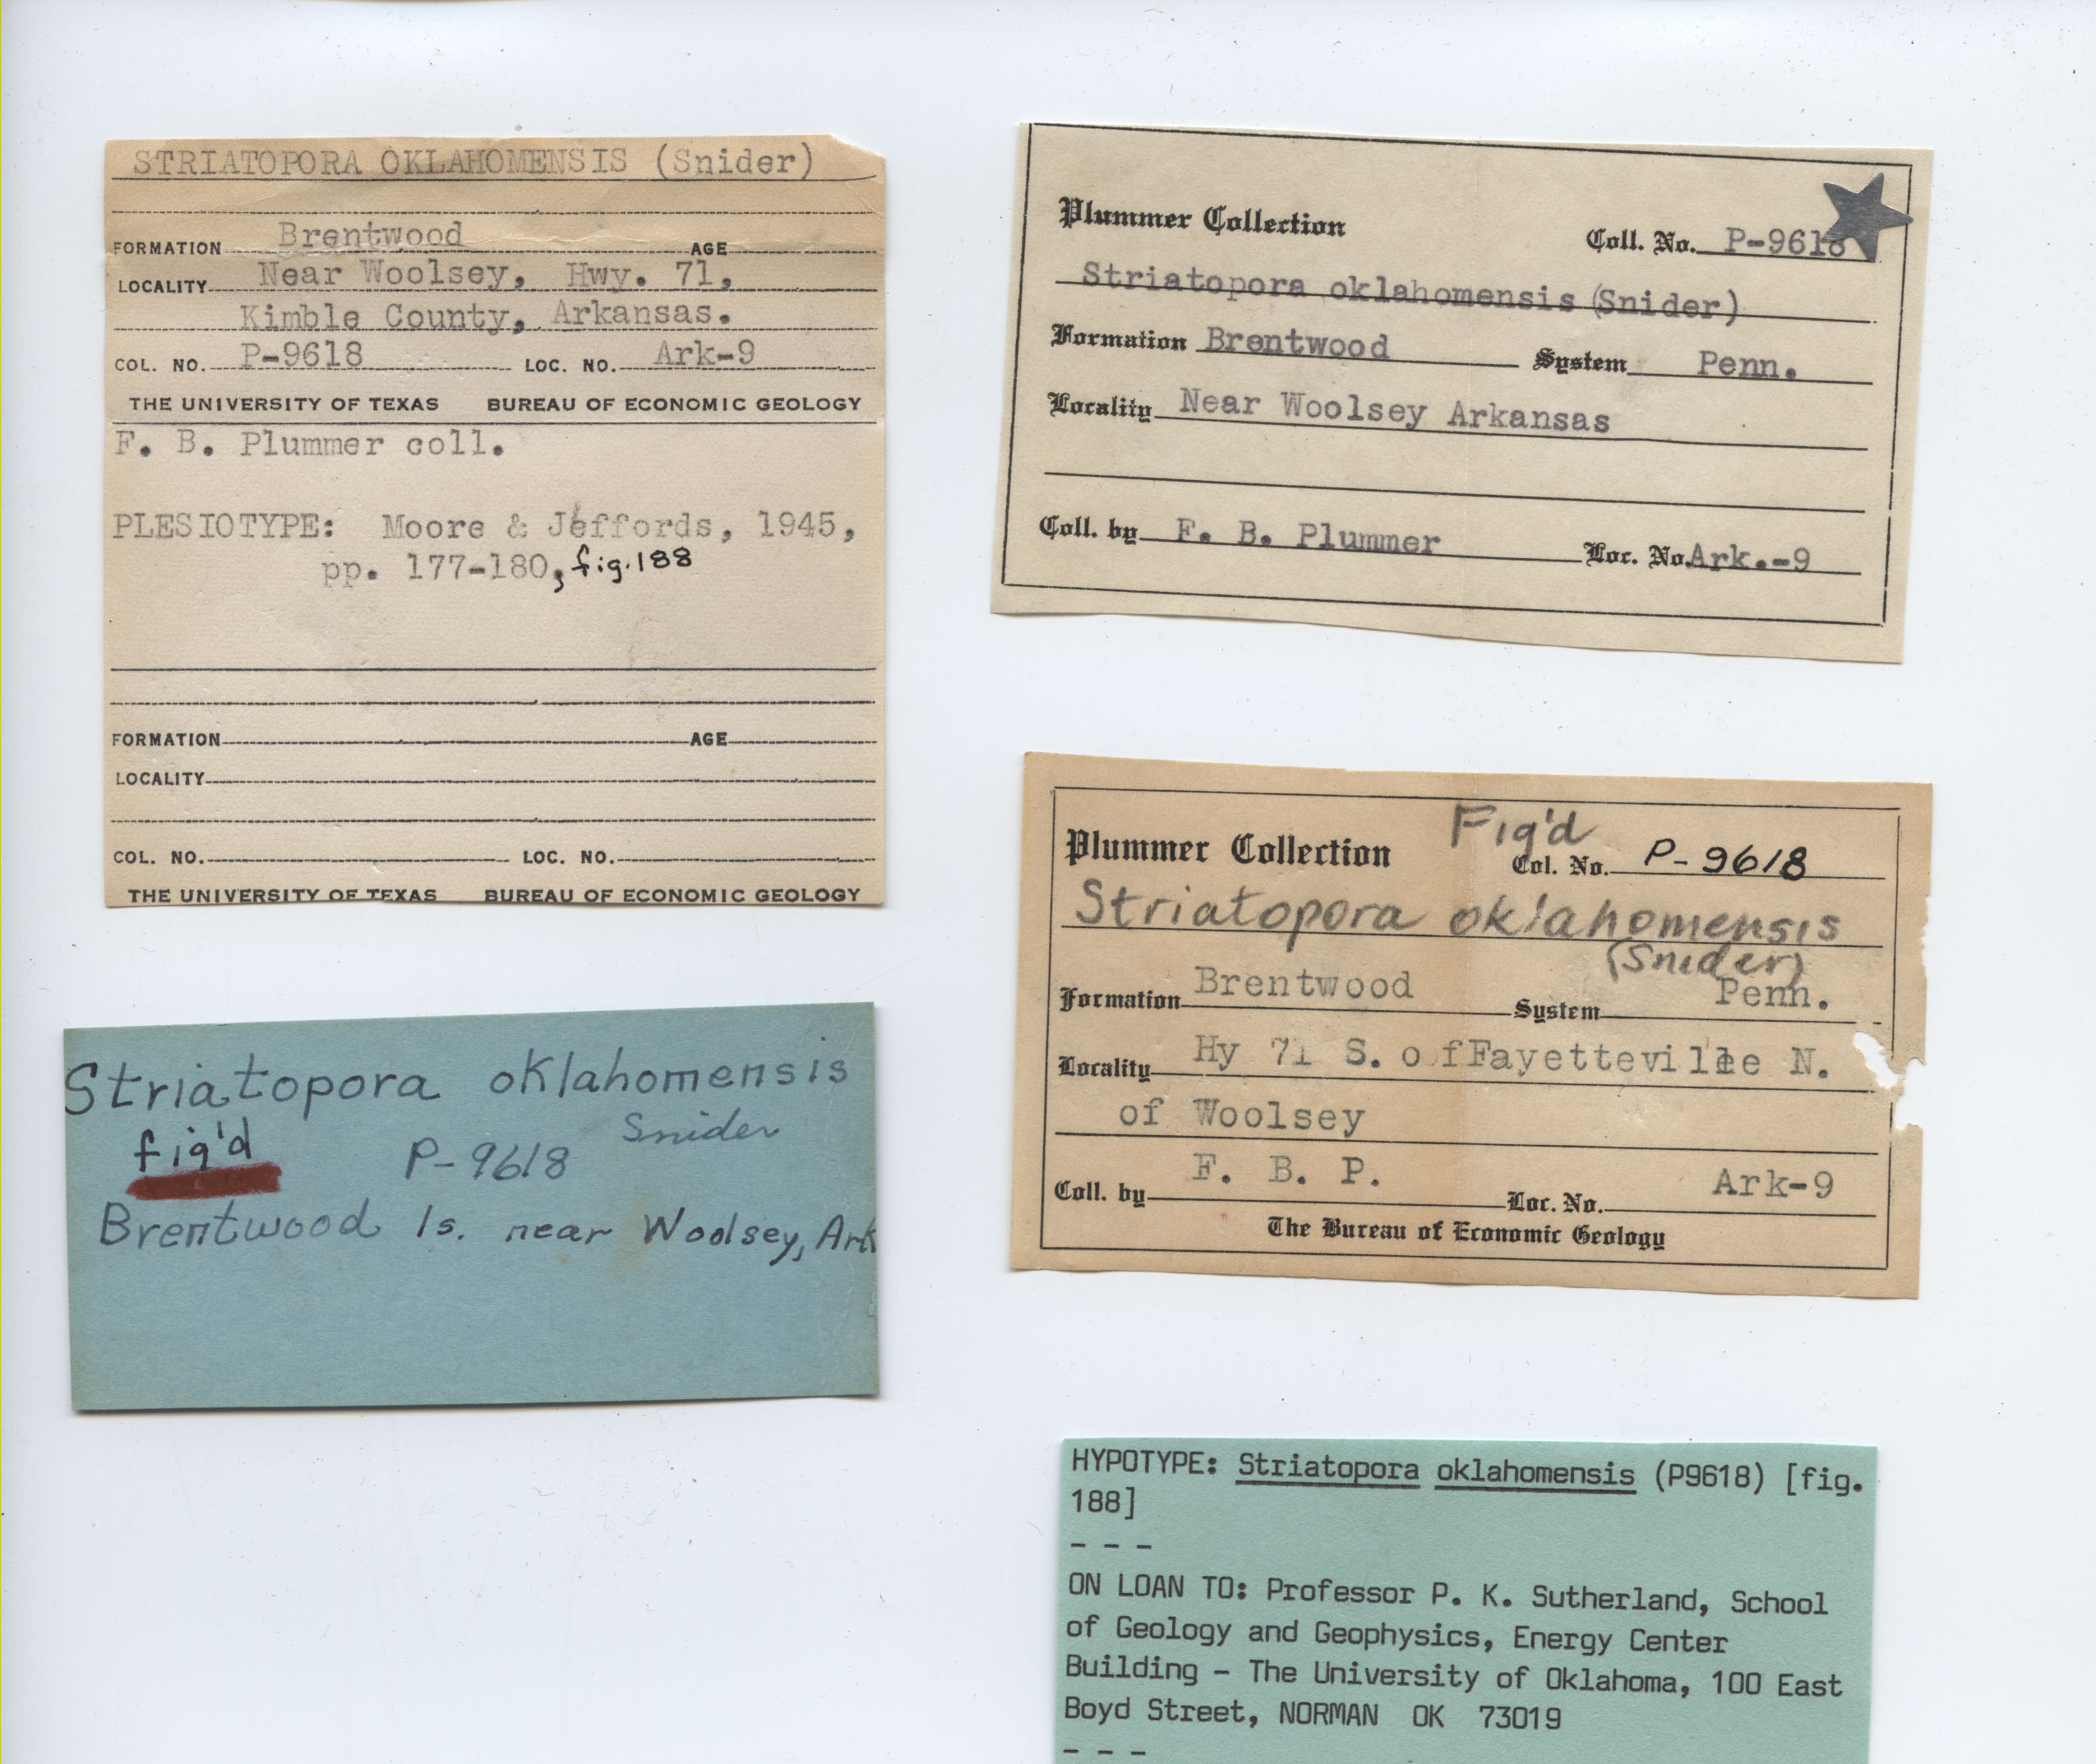 STRIATOPORA OKLAHOMENSIS (Snider)
FORMATION Brentwood AGE
LOCALITY Near Woolsey, Hwy. 71,
Kimble County, Arkansas.
COL. NO. P-9618 LOC. NO. Ark-9
THE UNIVERSITY OF TEXAS BUREAU OF ECONOMIC GEOLOGY
F. B. Plummer coll.
PLESIOTYPE: Moore & Jeffords, 1945,
pp. 177-180, fig. 188
FORMATION AGE
LOCALITY
COL. NO. LOC. NO.
THE UNIVERSITY OF TEXAS BUREAU OF ECONOMIC GEOLOGY
Striatopora oklahomensis
Snider
fig'd P-9618
Brentwood ls. near Woolsey, Ark
Plummer Collection
Coll. No. P-9618
Striatopora oklahomensis (Snider)
Formation Brentwood System Penn.
Locality Near Woolsey Arkansas
Coll. by F. B. Plummer Loc. No. Ark.-9
Fig'd
Plummer Collection Col. No. P-9618
Striatopora oklahomensis
(Snider)
Formation Brentwood System Penn.
Locality Hy 71 S. of Fayetteville N.
of Woolsey
Coll. by F. B. P. Loc. No. Ark-9
The Bureau of Economic Geology
HYPOTYPE: Striatopora oklahomensis (P9618) [fig.
188]
- - -
ON LOAN TO: Professor P. K. Sutherland, School
of Geology and Geophysics, Energy Center
Building - The University of Oklahoma, 100 East
Boyd Street, NORMAN OK 73019
- - -